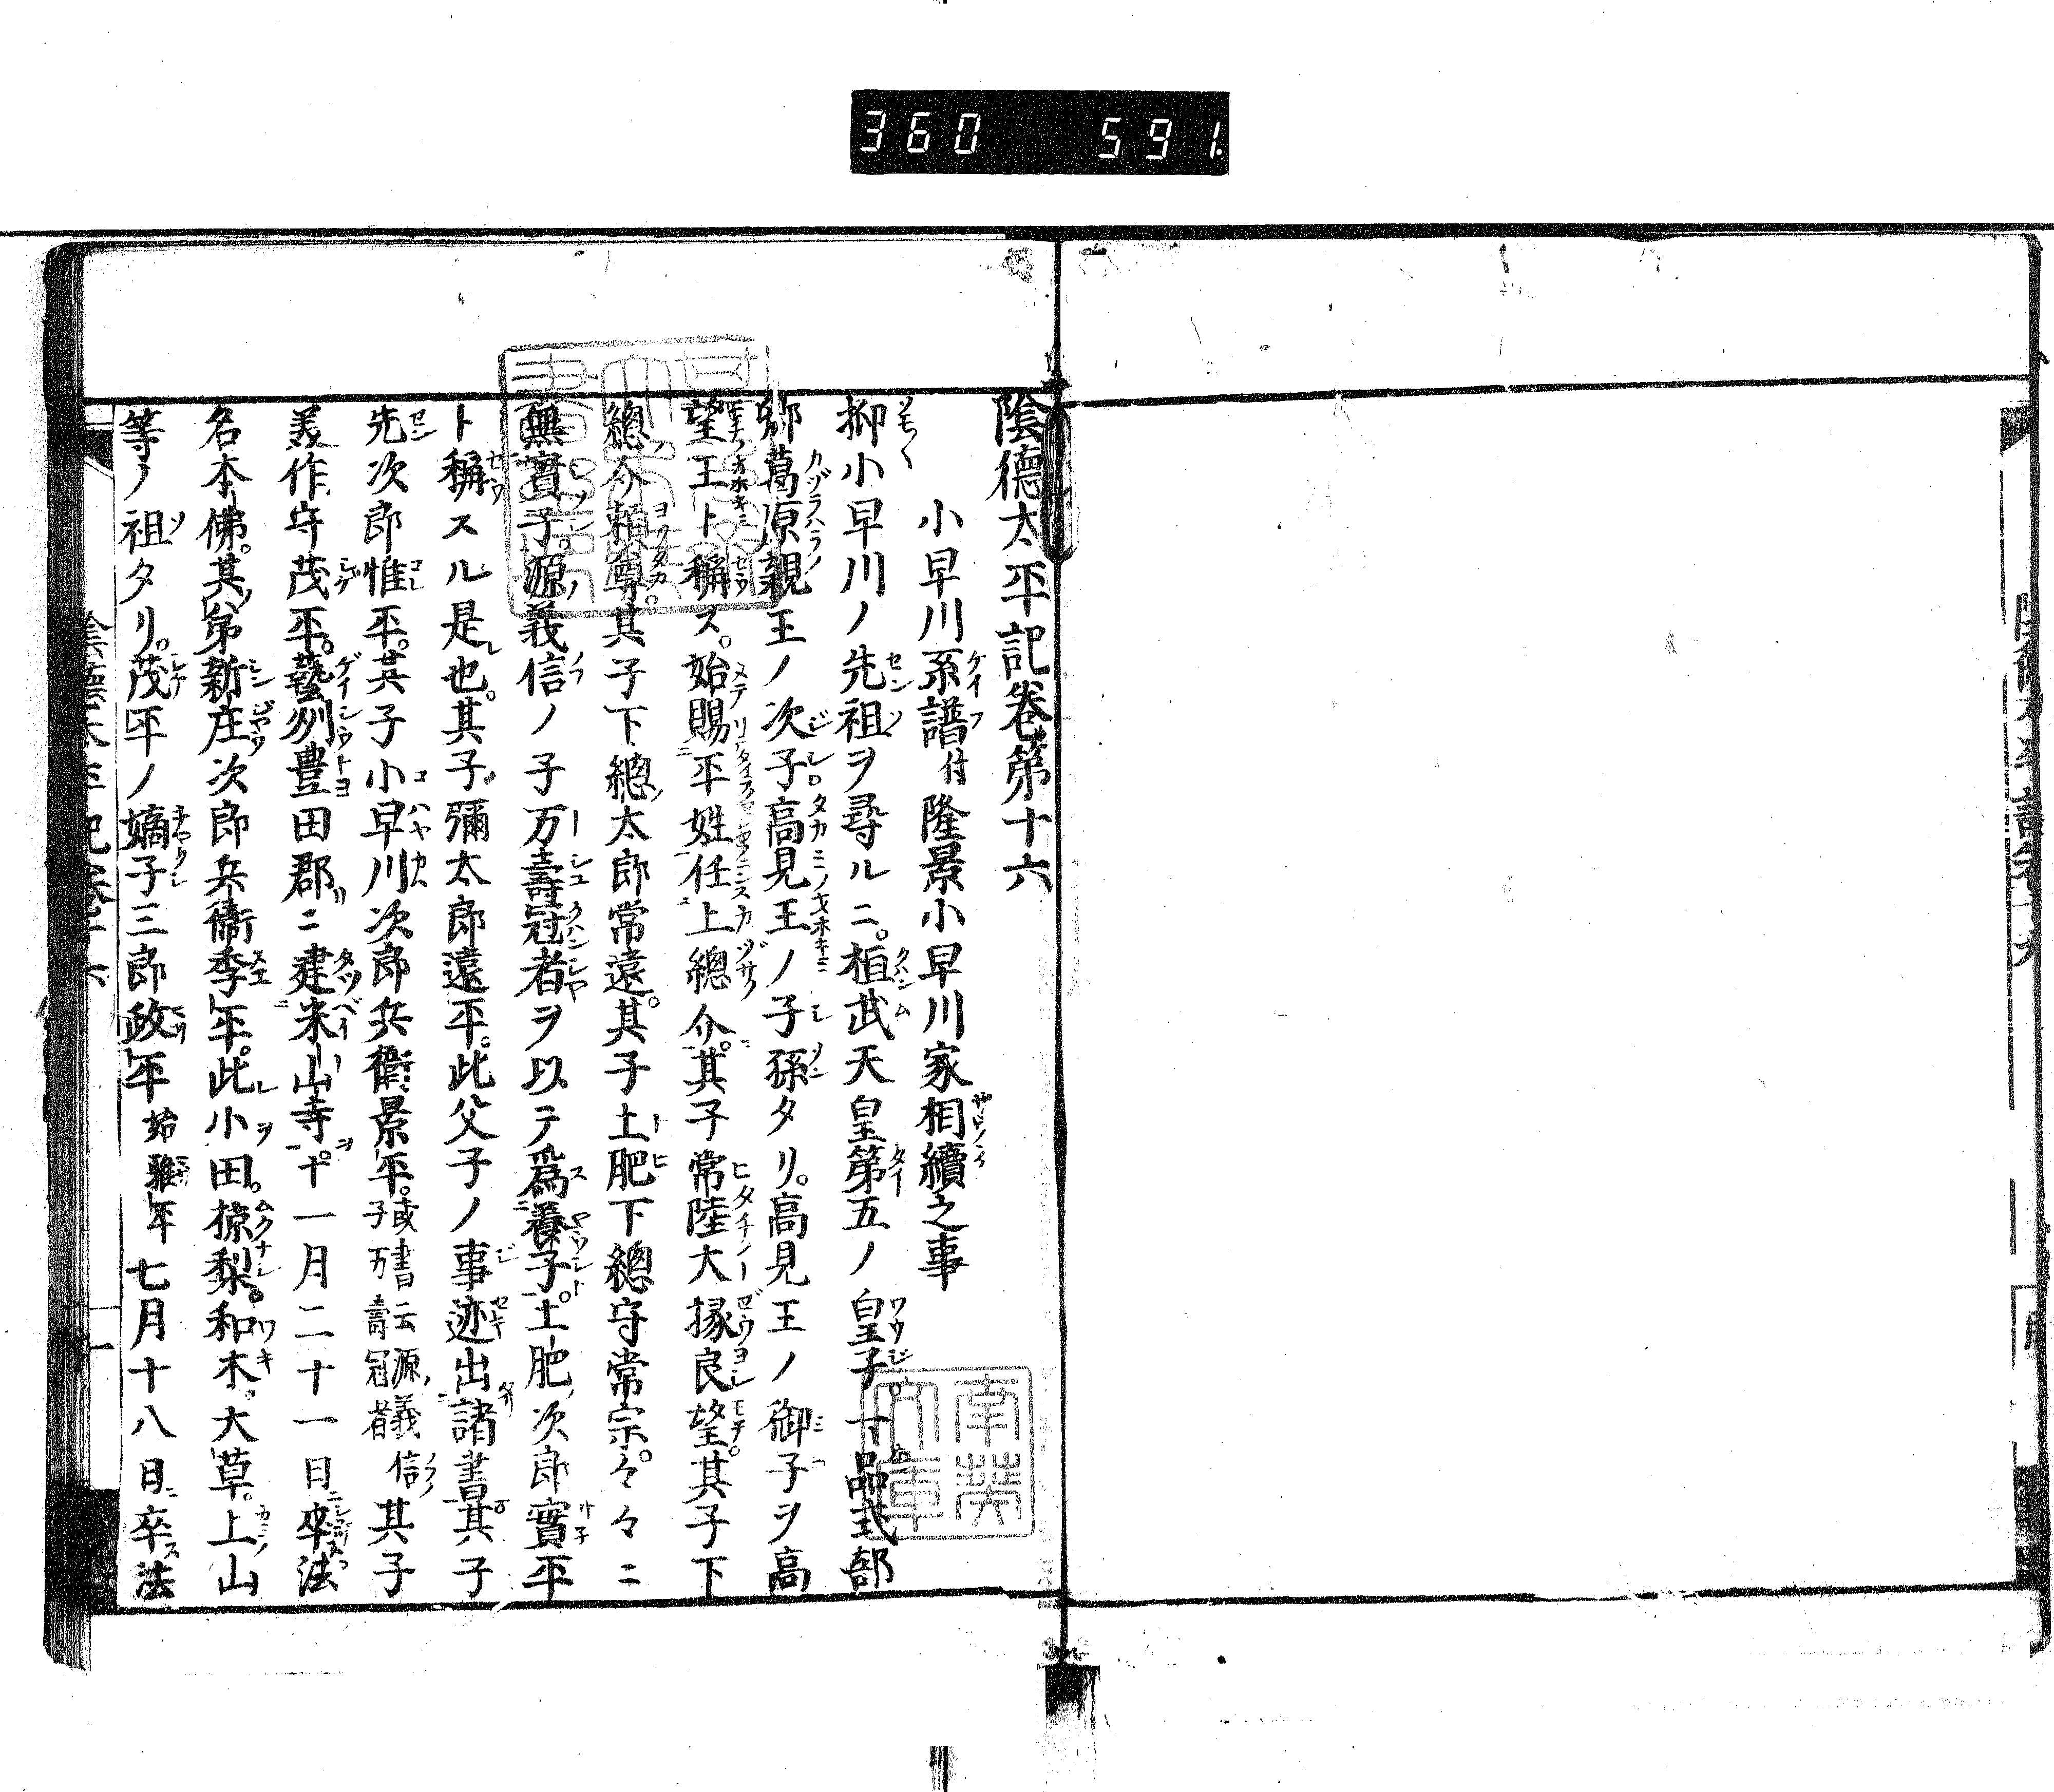 360 591
陰德太平記卷第十六
小早川系譜付隆景小早川家相續之事
抑小早川ノ先祖ヲ尋ルニ。桓武天皇第五ノ皇子。一品式部
卿葛原親王ノ次子高見王ノ子孫タリ。高見王ノ御子ヲ高
望王ト稱ス。始賜平姓任上總介。其子常陸大掾良望。其子下
總介賴尊其子下總太郎常遠。其子土肥下總守常宗。々々ニ
無實子。源義信ノ子万壽冠者ヲ以テ爲養子。土肥次郎實平
ト稱スル是也。其子彌太郎遠平。此父子ノ事迹出諸書其子
先次郎惟平。其子小早川次郎兵衛景平。或書云源義信子万壽冠者其子
美作守茂平。藝州豊田郡ニ建米山寺。十一月二十一日卒法
名本佛。其弟新庄次郎兵衞季平。此小田。椋梨。和木。大草。上山
等ノ祖タリ。茂平ノ嫡子三郎政平始雅平七月十八日卒法